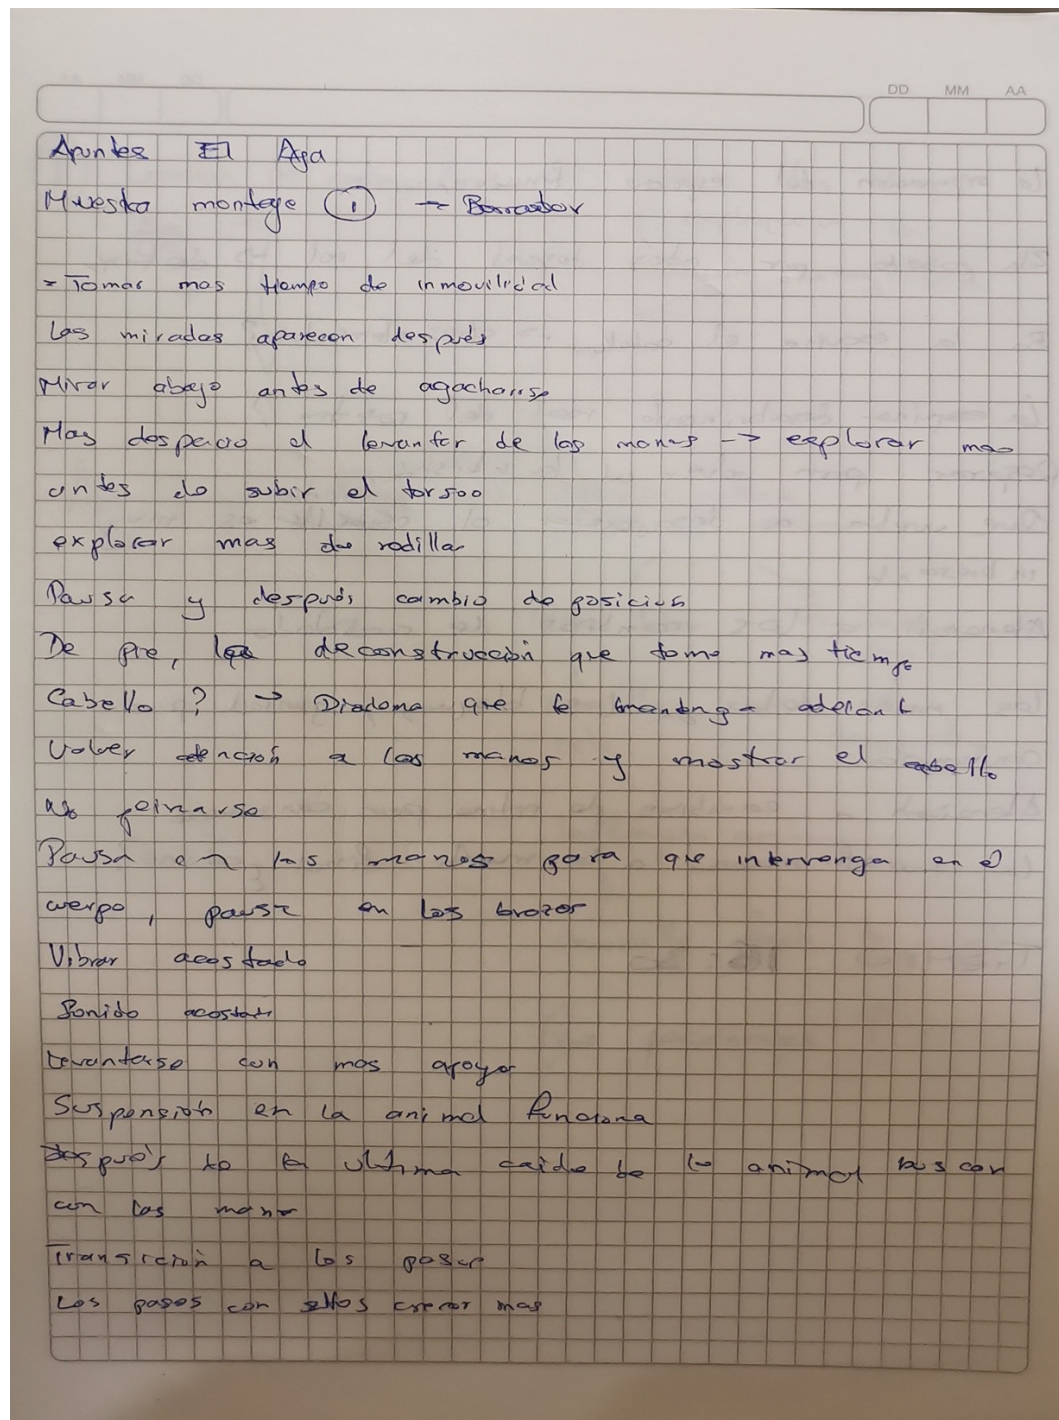 DD MM AA
Apuntes El Aga
Muestra montaje 1 → Borrador
- Tomar mas tiempo de inmovilidad
Las miradas aparecen después
Mirar abajo antes de agacharse
Mas despacio el levantar de las manos → explorar mas
antes de subir el torsoo
explorar mas de rodilla
Pausa y después cambio de posicion
De pie, la deconstrucción que tome mas tiempo
Cabello ? → Diadema que le mantenga adelant
Volver atención a las manos y mostrar el cabello
No peinarse
Pausa en las manos para que intervenga en el
cuerpo, pausa en los brazos
Vibrar acostado
Sonido acostado
Levantarse con mas apoyo
Suspensión en la animal funciona
Después de la ultima caida de lo animal buscar
con las mano
Transición a los
Los pasos con crecer mas